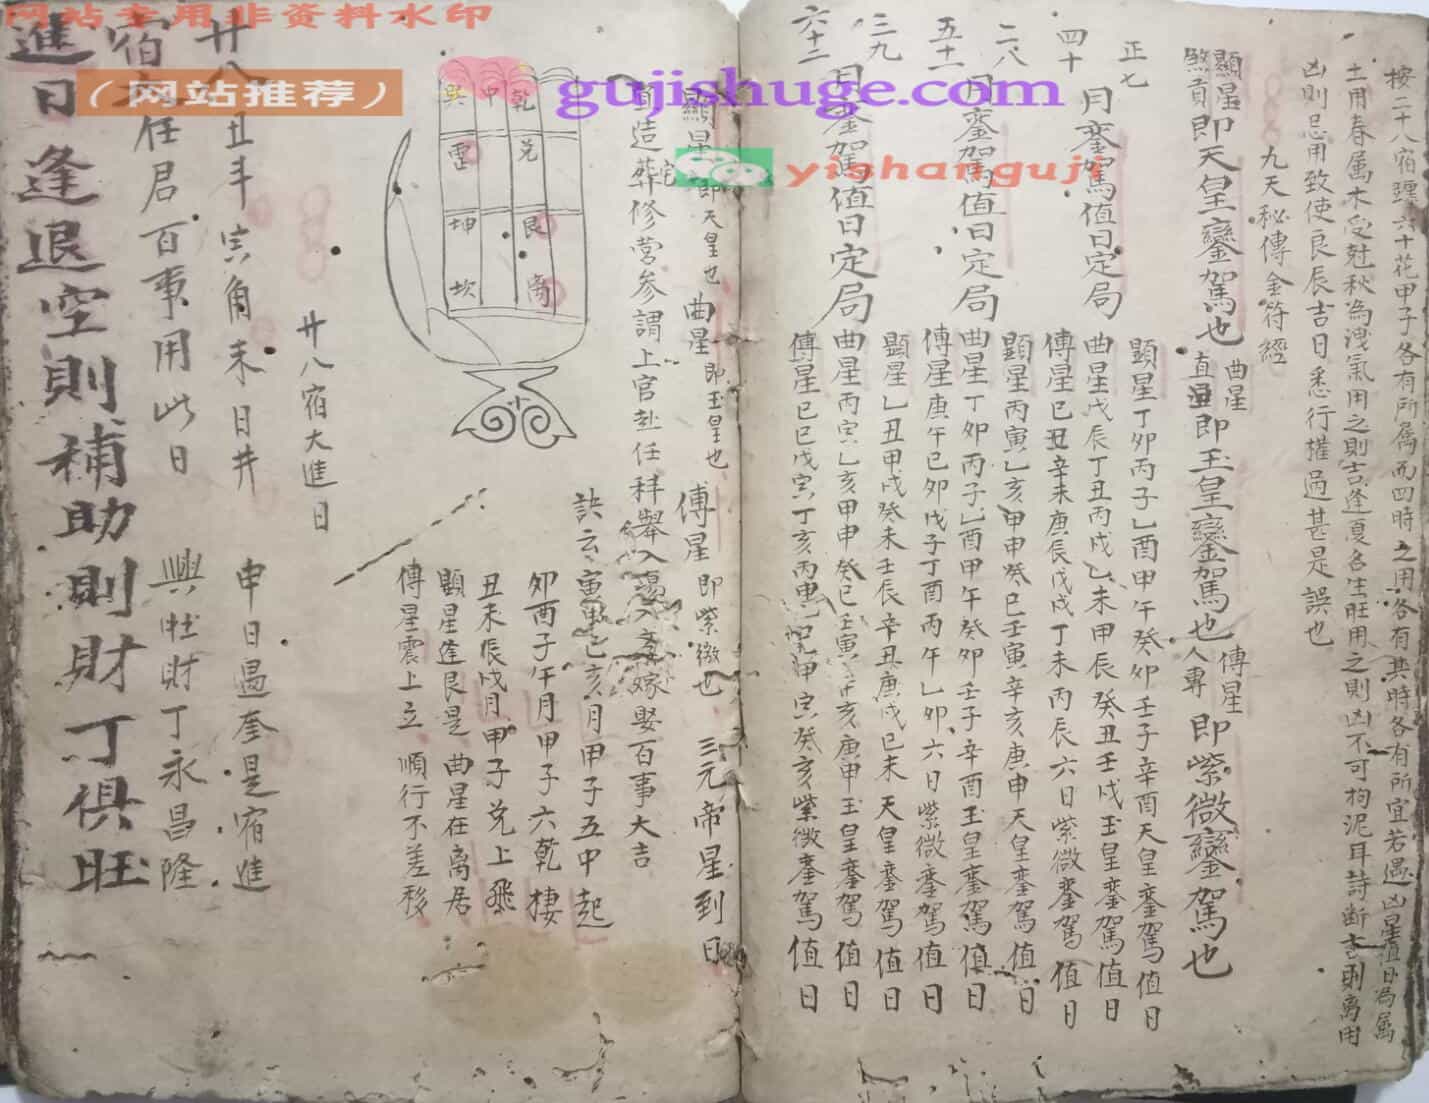 按二十八宿躔六十花甲子各有所属而四時之用各有其時各有所宜若遇凶星值日為属
土用春属木受尅秋為洩氣用之則吉逢夏各生旺用之則凶不可拘泥耳詩断吉則离用
凶則忌用致使良辰吉日悉行權過甚是誤也
九天秘傳金符經
顯星
煞貢即天皇鑾駕也
曲星
直
即玉皇鑾駕也
傳星
人專
即紫微鑾駕也
正七
四十
月鑾駕值日定局
顯星丁卯丙子乙酉甲午癸卯壬子辛酉天皇鑾駕值日
曲星戊辰丁丑丙戌乙未甲辰癸丑壬戌玉皇鑾駕值日
傳星己丑辛未庚辰戊戌丁未丙辰六日紫微鑾駕值日
二八
五十一
月鑾駕值日定局
顯星丙寅乙亥甲申癸巳壬寅辛亥庚申天皇鑾駕值日
曲星丁卯丙子乙酉甲午癸卯壬子辛酉玉皇鑾駕值日
傳星庚午己卯戊子丁酉丙午乙卯六日紫微鑾駕值日
三九
六十二
月鑾駕值日定局
顯星乙丑甲戌癸未壬辰辛丑庚戌己未天皇鑾駕值日
曲星丙寅乙亥甲申癸巳壬寅辛亥庚申玉皇鑾駕值日
傳星己巳戊寅丁亥丙申
甲寅癸亥紫微鑾駕值日
顯星即天皇也
曲星即玉皇也
傳星即紫微也
三元帝星到日
宜造葬修营参謁上官赴任科舉入
嫁娶百事大吉
訣云寅申巳亥月甲子五中起
卯酉子午月甲子六乾棲
丑未辰戌月甲子兌上飛
顯星逢艮是曲星在离居
傳星震上立順行不差移
巽 中 乾
震 兌
坤 艮
坎 离
廿八宿大進日
廿八丑年
角未日井
申日遇奎是宿進
宿
任君百事用此日
興旺財丁永昌隆
進日逢退空則補助則財丁俱旺
网站专用非资料水印
（网站推荐）
gujishuge.com
yishanguji